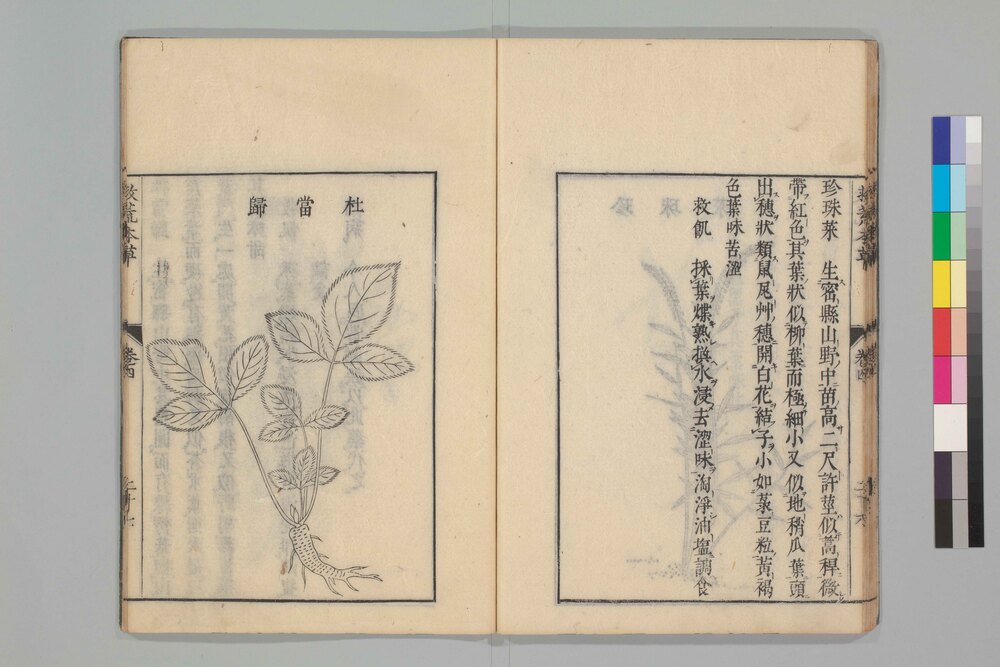 珍珠菜　生密縣山野中苗高二尺許莖似蒿稈微
帶紅色其葉狀似柳葉而極細小又似地稍瓜葉頭
出穗狀類鼠尾艸穗開白花結子小如菉豆粒黃褐
色葉味苦澀
救飢　採葉煠熟換水浸去澀味淘淨油塩調食
杜當歸
救荒本草
卷四